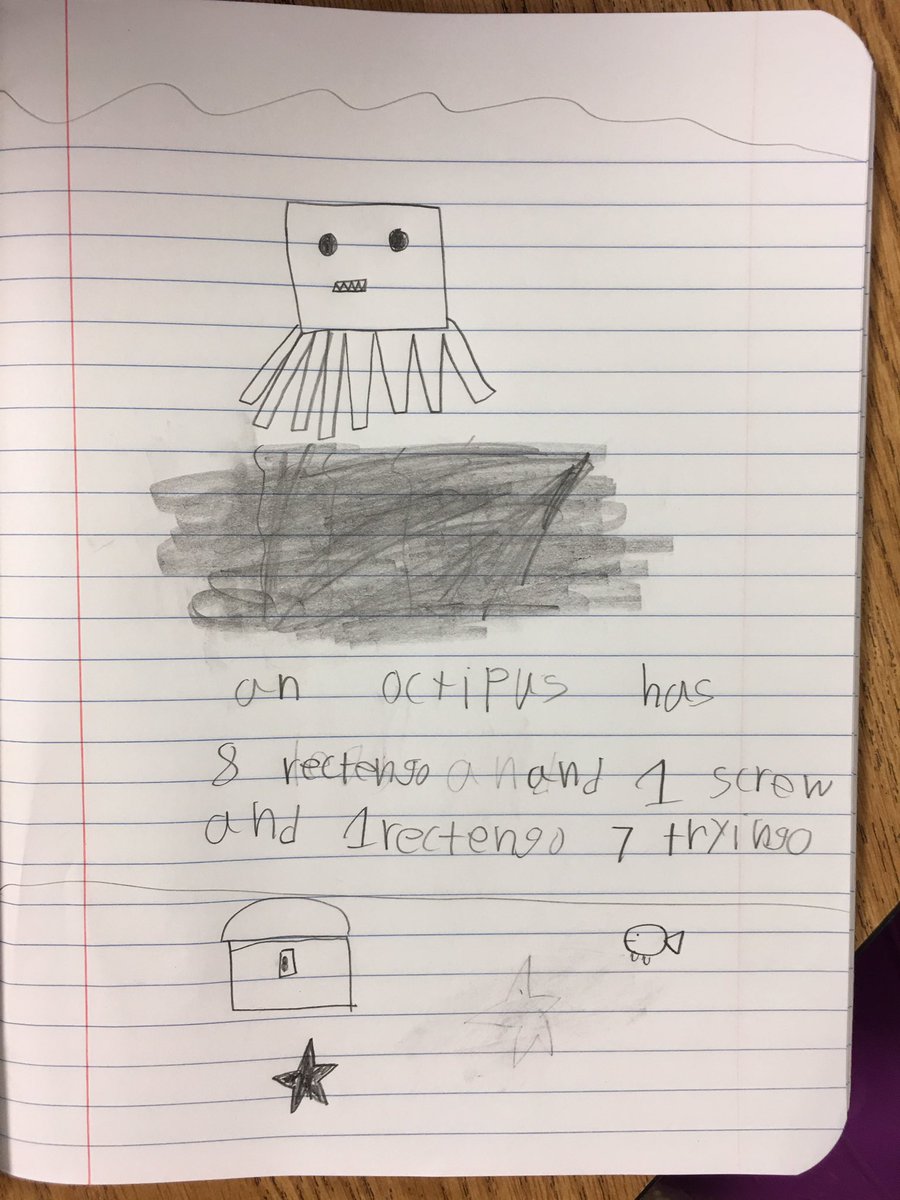 an octipus has
8 rectengo and 1 screw
and 1 rectengo 7 tryingo